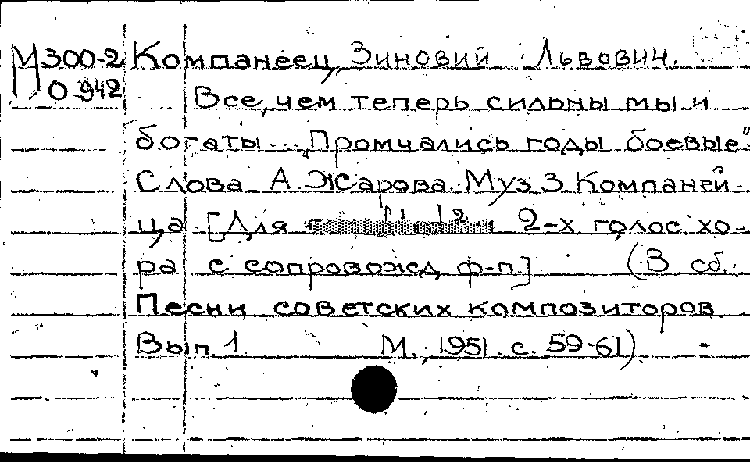 М300-2 Компанеец, Зиновий Львович.
О 942 Все, чем теперь сильны мы и
богаты... „Промчались годы боевые"
Слова А. Жарова Муз. З. Компаней-
ца [Для 2-х голос. хо-
ра с сопровожд. ф-п.] (В сб.:
Песни советских композиторов
Вып. 1. М., 1951. с. 59-61).